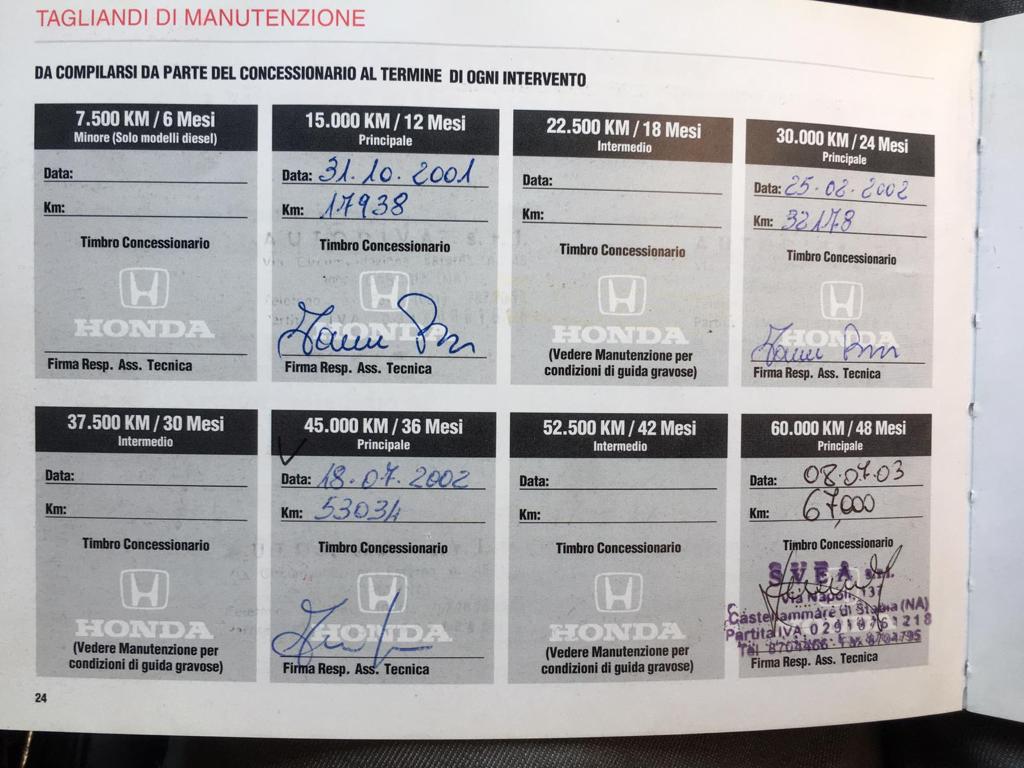 TAGLIANDI DI MANUTENZIONE
DA COMPILARSI DA PARTE DEL CONCESSIONARIO AL TERMINE DI OGNI INTERVENTO
7.500 KM / 6 Mesi
Minore (Solo modelli diesel)
Data:
Km:
Timbro Concessionario
HONDA
Firma Resp. Ass. Tecnica
15.000 KM / 12 Mesi
Principale
Data: 31.10.2001
Km: 17938
Timbro Concessionario
HONDA
Firma Resp. Ass. Tecnica
22.500 KM / 18 Mesi
Intermedio
Data:
Km:
Timbro Concessionario
HONDA
(Vedere Manutenzione per
condizioni di guida gravose)
30.000 KM / 24 Mesi
Principale
Data: 25.02.2002
Km: 32178
Timbro Concessionario
HONDA
Firma Resp. Ass. Tecnica
37.500 KM / 30 Mesi
Intermedio
Data:
Km:
Timbro Concessionario
HONDA
(Vedere Manutenzione per
condizioni di guida gravose)
45.000 KM / 36 Mesi
Principale
Data: 18.07.2002
Km: 53034
Timbro Concessionario
HONDA
Firma Resp. Ass. Tecnica
52.500 KM / 42 Mesi
Intermedio
Data:
Km:
Timbro Concessionario
HONDA
(Vedere Manutenzione per
condizioni di guida gravose)
60.000 KM / 48 Mesi
Principale
Data: 08.07.03
Km: 67,000
Timbro Concessionario
SVEA s.r.l.
Via Napoli, 137
Castellammare di Stabia (NA)
Partita IVA 02918761218
Tel. 8704466 - Fax 8704795
Firma Resp. Ass. Tecnica
24